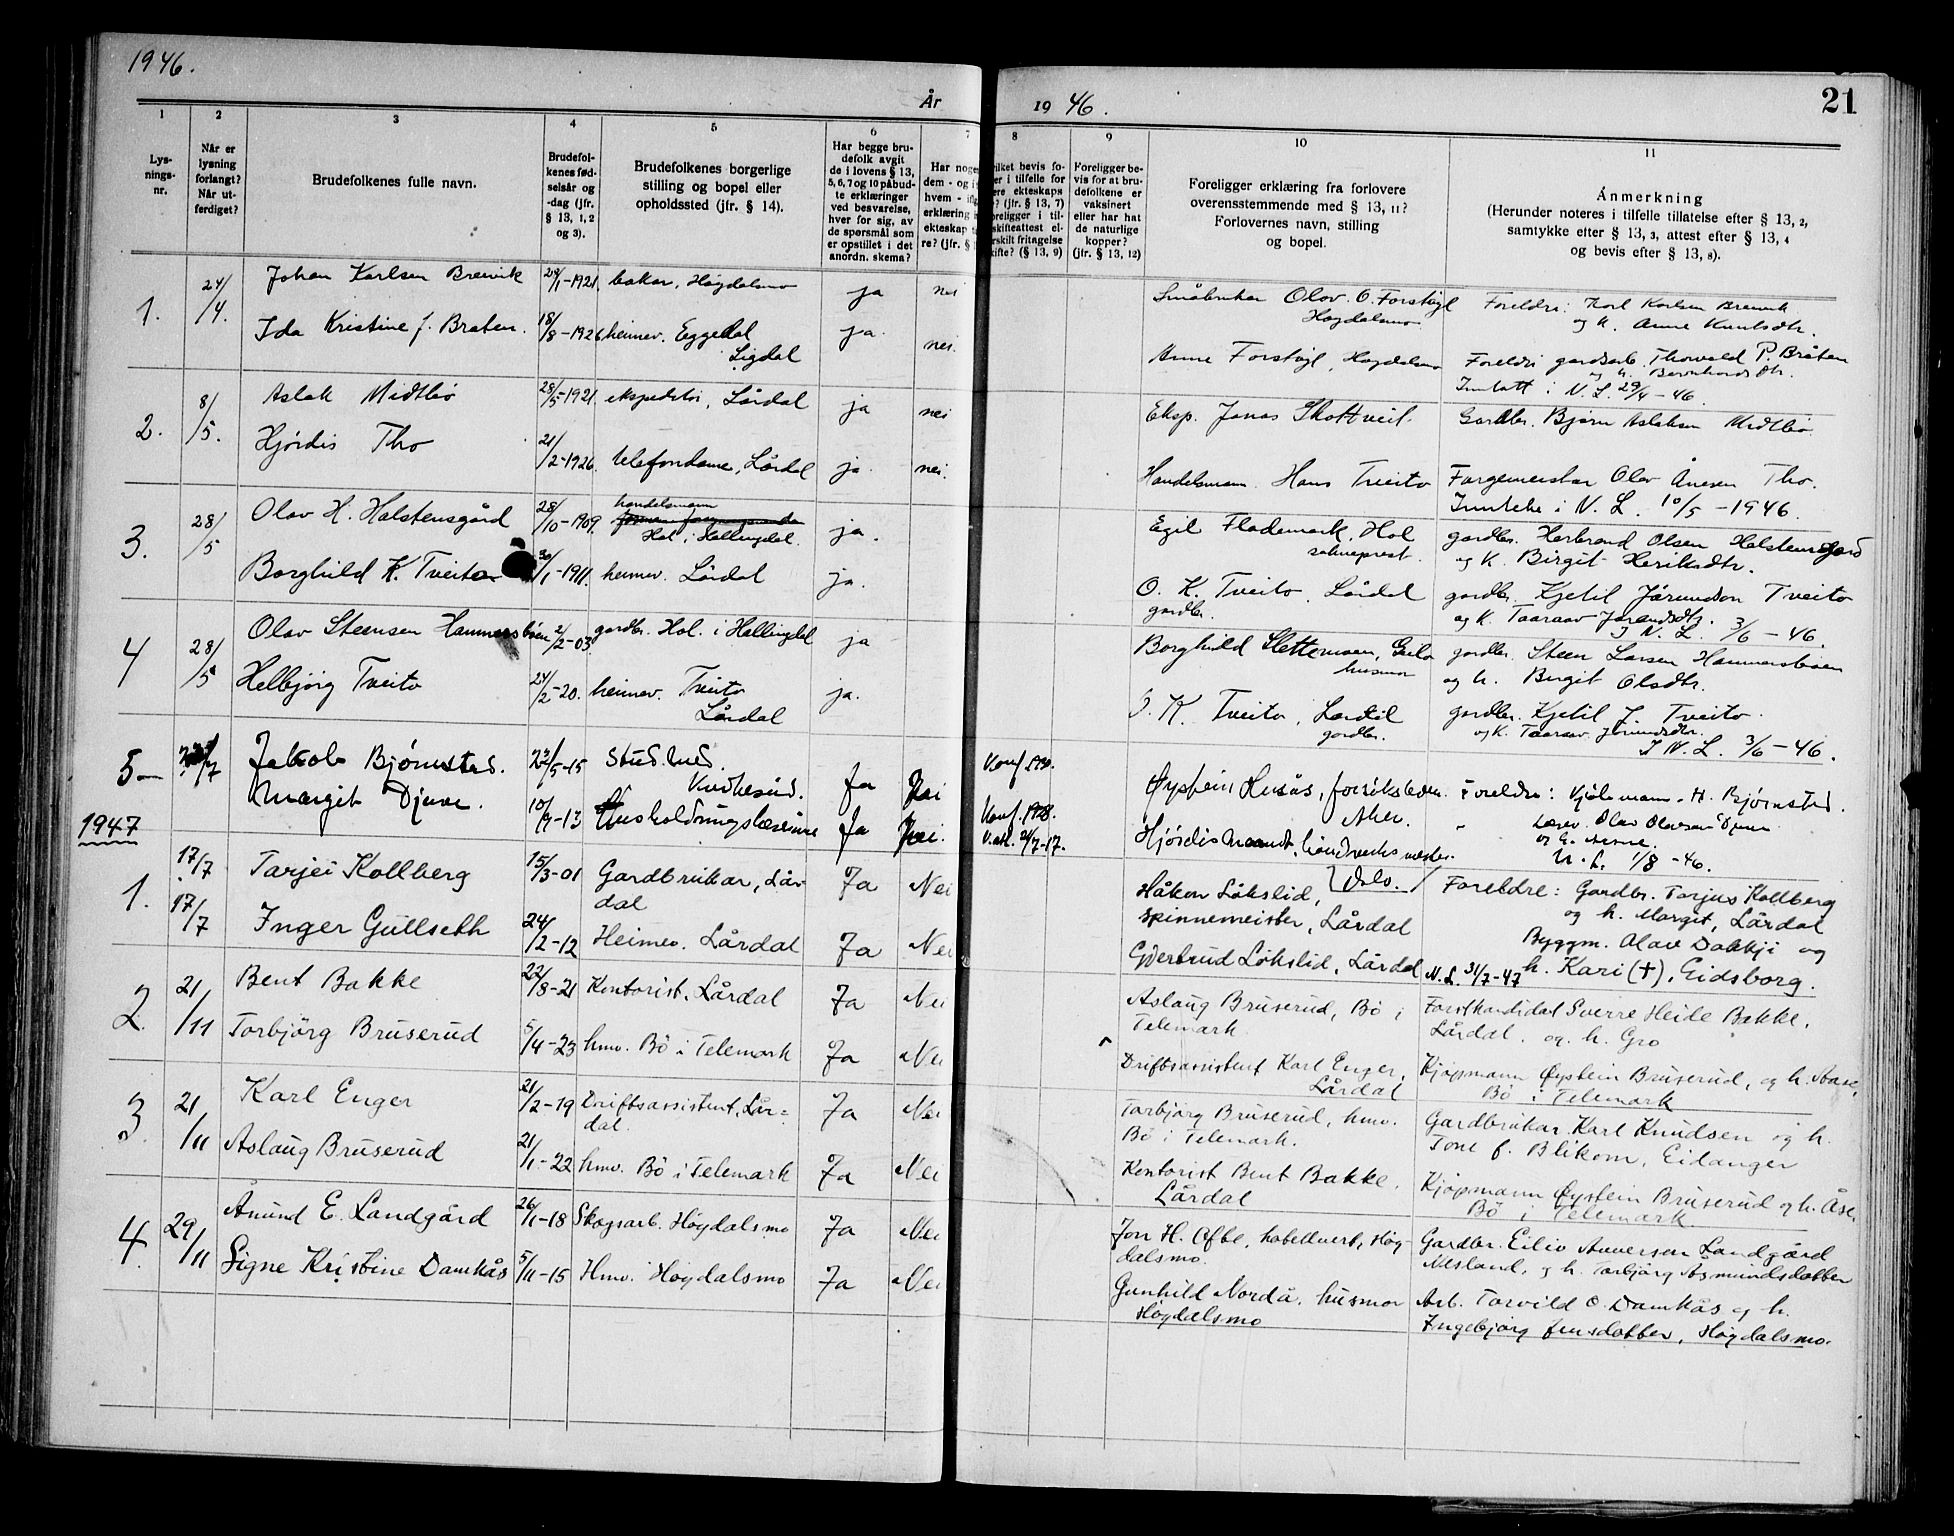 1946.
År
19 46.
21
1
2
3
4
5
6
7
8
9
10
11
Lys-
nings-
nr.
Når er
lysning
forlangt?
Når ut-
ferdiget?
Brudefolkenes fulle navn.
Brudefol-
kenes fød-
selsår og
-dag (jfr.
§ 13, 1, 2
og 3).
Brudefolkenes borgerlige
stilling og bopel eller
opholdssted (jfr. § 14).
Har begge bru-
defolk avgit
de i lovens § 13,
5, 6, 7 og 10 påbud-
te erklæringer
ved besvarelse,
hver for sig, av
de spørsmål som
er opstillet i det
anordn. skema?
Har noge
dem - og i
hvem - if
erklæring
ekteskap t
re? (jfr. §
ilket bevis fo-
er i tilfelle for
ere ekteskaps
? (jfr. § 13, 7)
oreligger i til-
skifteattest el-
rskilt fritagelse
kifte? (§ 13, 9)
Foreligger be-
vis for at bru-
defolkene er
vaksinert
eller har hat
de naturlige
kopper?
(jfr. § 13, 12)
Foreligger erklæring fra forlovere
overensstemmende med § 13, 11?
Forlovernes navn, stilling
og bopel.
Anmerkning
(Herunder noteres i tilfelle tillatelse efter § 13, 2,
samtykke efter § 13, 3, attest efter § 13, 4
og bevis efter § 13, 8).
1. 24/4. Johan Karlsen Breivik /1-1921. baker, Høgdalsmo ja nei
Småbruker Olav O. Forstøyl
Høgdalsmo
Foreldre: Karl Karlsen Breivik
og k. Anne Knutsdtr.
Ida Kristine f. Braten. 18/8-1926 heimev. Eggedal
Sigdal ja. nei.
Anne Forstøyl, Høgdalsmo
Foreldre gardsarb. Thorvald P. Bråten
og h. Bernhardsdtr.
Inntatt i N. L. 29/4-46.
2. 8/5. Aslak Midtbø 28/5-1921. ekspeditør, Lårdal ja nei
Eksp. Jonas Skottveit. Gardbr. Bjørn Aslaksen Midtbø
Hjørdis Tho 21/2-1926. telefondame, Lårdal ja. nei.
Handelsmann Hans Tveito Fargemeister Olav Ånesen Tho.
N. L. 10/5-1946.
3. 28/5 Olav H. Halstensgård 28/10-1909. handelsmann
Hol i Hallingdal. ja.
Egil Flademark, Hol
sokneprest.
gardbr. Herbrand Olsen Halstensgård
og k. Birgit Heriksdtr.
Borghild K. Tveito 30/1-1911. heimev. Lårdal ja.
O. K. Tveito, Lårdal
gardbr.
gardbr. Kjetil Jørundson Tveito
og k. Taaraav Jørundsdtr.
I N. L. 3/6-46.
4 28/5 Olav Steensen Hammersbøen 2/2-03 gardbr. Hol. i Hallingdal ja
Borghild Slettemoen, Geilo
husmor
gardbr. Steen Larsen Hammersbøen
og h. Birgit Olsdtr.
Helbjørg Tveito 24/2-20. heimev. Tveito
Lårdal ja.
O. K. Tveito, Lårdal
gardbr.
gardbr. Kjetil J. Tveito.
og k. Taaraav Jørundsdtr.
I N. L. 3/6-46.
5- /7 Jakob Bjørnstad. 22/5-15 Stud. med.
Ja Nei Konf.
Øystein Husås, Aker. Foreldre: Kjøbmann H. Bjørnstad.
Margit Djuve. 10/7-13 Husholdningslærerinne Ja Nei. Konf. 1928.
Vakt. 2/7-17.
Hjørdis
Oslo.
Lærer Olav Olavsen Djuve
og h. Anne.
N. L. 1/8-46.
1947
1. 17/7 Tarjei Kollberg 15/3-01 Gardbrukar, Lår-
dal Ja Nei
Håkon Lökslid,
spinnemeister, Lårdal
Foreldre: Gardbr. Tarjus Kollberg
og h. Margit, Lårdal
17/7 Inger Gullseth 24/2-12 Heimev. Lårdal Ja Nei
Gjertrud Lökslid, Lårdal
Byggm. Olav Dakkji og
h. Kari (+), Eidsborg.
N. L. 31/7-47
2. 21/11 Bent Bakke 22/8-21 Kontorist, Lårdal Ja Nei
Aslaug Bruserud, Bö i
Telemark.
Forstkandidat Sverre Heide Bakke,
Lårdal. og h. Gro
Torbjörg Bruserud 5/4-23 hmv. Bö i Telemark Ja Nei
Driftsassistent Karl Enger,
Lårdal
Kjöpmann Øystein Bruserud, og h. Aase,
Bö i Telemark
3. 21/11 Karl Enger 21/2-19 Driftsassistent, Lår-
dal. Ja Nei
Torbjörg Bruserud, hmv.
Bö i Telemark.
Gardbrukar Karl Knudsen og h.
Tone f. Blikom, Eidanger
Aslaug Bruserud 21/1-22 hmv. Bö i Telemark Ja Nei
Kontorist Bent Bakke,
Lårdal
Kjöpmann Øystein Bruserud og h. Åse,
Bö i Telemark
4. 29/11 Åmund E. Landgård 26/1-18 Skogsarb. Högdalsmo Ja Nei
Jon H. Ofte, hotellvert, Hög-
dalsmo.
Gardbr. Eiliv Anversen Landgård
Nesland, og h. Torbjörg Åsmundsdotter
Signe Kristine Damkås 5/11-15 Hmv. Högdalsmo Ja Nei
Gunhild Nordå, husmor
Högdalsmo
Arb. Torvild O. Damkås og h.
Ingebjörg Jensdotter, Högdalsmo.